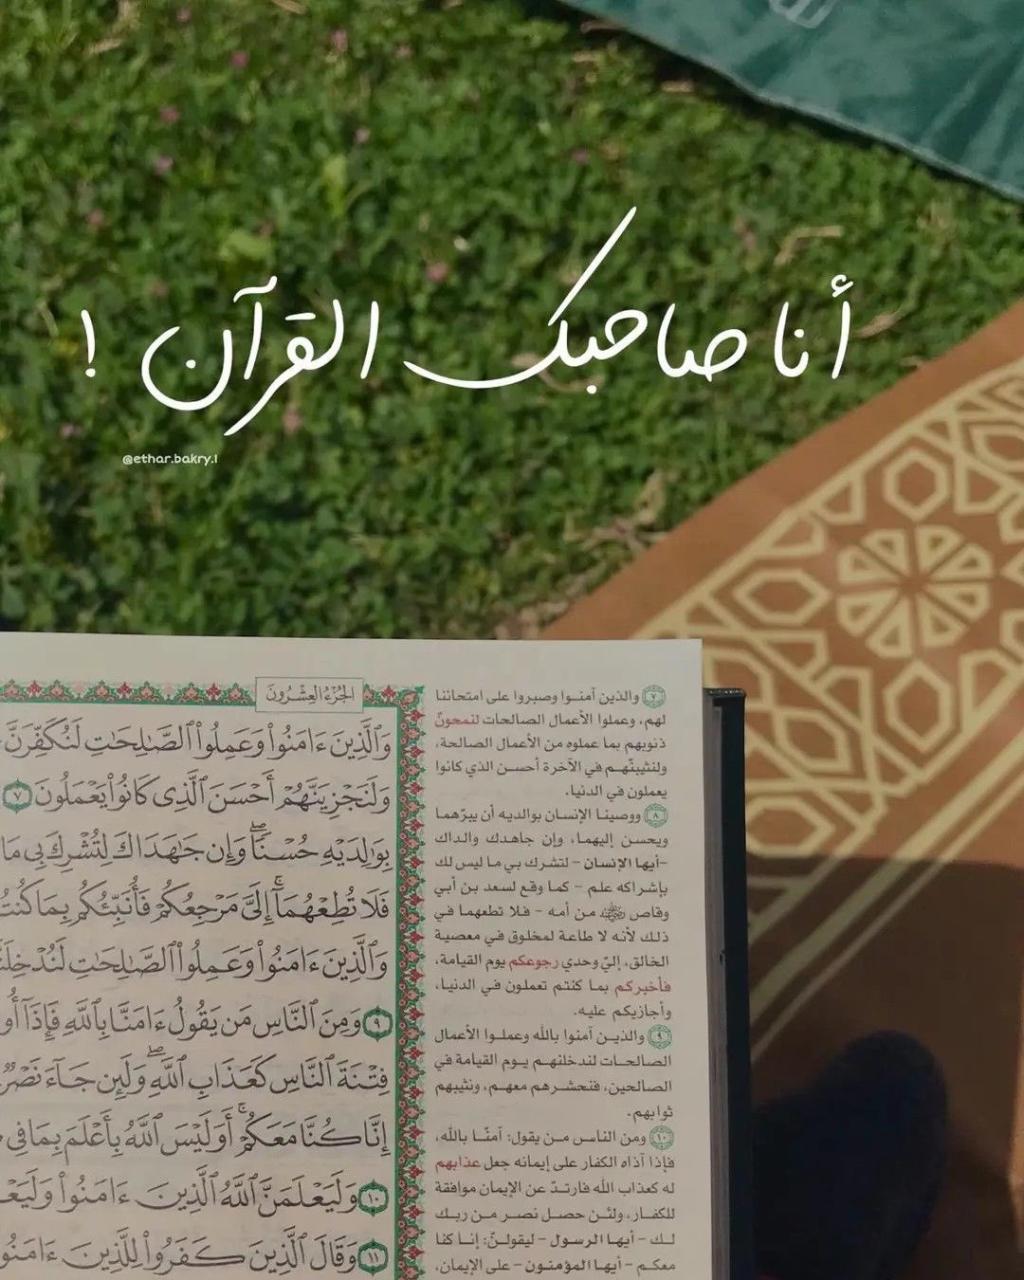 أنا صاحبك القرآن !
@ethar.bakry.1
الجزء العشرون
وَٱلَّذِينَ ءَامَنُوا۟ وَعَمِلُوا۟ ٱلصَّٰلِحَٰتِ لَنُكَفِّرَنَّ
وَلَنَجْزِيَنَّهُمْ أَحْسَنَ ٱلَّذِى كَانُوا۟ يَعْمَلُونَ ٧
بِوَٰلِدَيْهِ حُسْنًا ۖ وَإِن جَٰهَدَاكَ لِتُشْرِكَ بِى مَا
فَلَا تُطِعْهُمَآ ۚ إِلَىَّ مَرْجِعُكُمْ فَأُنَبِّئُكُم بِمَا
وَٱلَّذِينَ ءَامَنُوا۟ وَعَمِلُوا۟ ٱلصَّٰلِحَٰتِ
٩ وَمِنَ ٱلنَّاسِ مَن يَقُولُ ءَامَنَّا بِٱللَّهِ فَإِذَآ
فِتْنَةَ ٱلنَّاسِ كَعَذَابِ ٱللَّهِ ۖ وَلَئِن جَآءَ
إِنَّا كُنَّا مَعَكُمْ ۚ أَوَلَيْسَ ٱللَّهُ بِأَعْلَمَ بِمَا فِى
١٠ وَلَيَعْلَمَنَّ ٱللَّهُ ٱلَّذِينَ ءَامَنُوا۟
١١ وَقَالَ ٱلَّذِينَ كَفَرُوا۟ لِلَّذِينَ
٧ والذين آمنوا وصبروا على امتحاننا
لهم، وعملوا الأعمال الصالحات لنمحونّ
ذنوبهم بما عملوه من الأعمال الصالحة،
ولنثيبنّهم في الآخرة أحسن الذي كانوا
يعملون في الدنيا.
٨ ووصينا الإنسان بوالديه أن يبرّهما
ويحسن إليهما، وإن جاهدك والداك
-أيها الإنسان- لتشرك بي ما ليس لك
بإشراكه علم - كما وقع لسعد بن أبي
وقاص رضي الله عنه من أمه - فلا تطعهما في
ذلك لأنه لا طاعة لمخلوق في معصية
الخالق، إليّ وحدي رجوعكم يوم القيامة،
فأخبركم بما كنتم تعملون في الدنيا،
وأجازيكم عليه.
٩ والذين آمنوا بالله وعملوا الأعمال
الصالحات لندخلنهم يوم القيامة في
الصالحين، فنحشرهم معهم، ونثيبهم
ثوابهم.
١٠ ومن الناس من يقول: آمنّا بالله،
فإذا آذاه الكفار على إيمانه جعل عذابهم
له كعذاب الله فارتدّ عن الإيمان موافقة
للكفار، ولئن حصل نصر من ربك
لك - أيها الرسول - ليقولنّ: إنا كنا
معكم - أيها المؤمنون - على الإيمان،